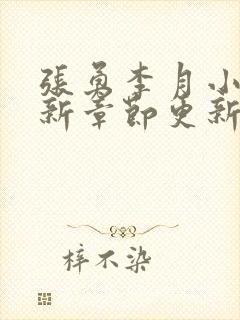 張勇李月小
新章節更新
梓不染